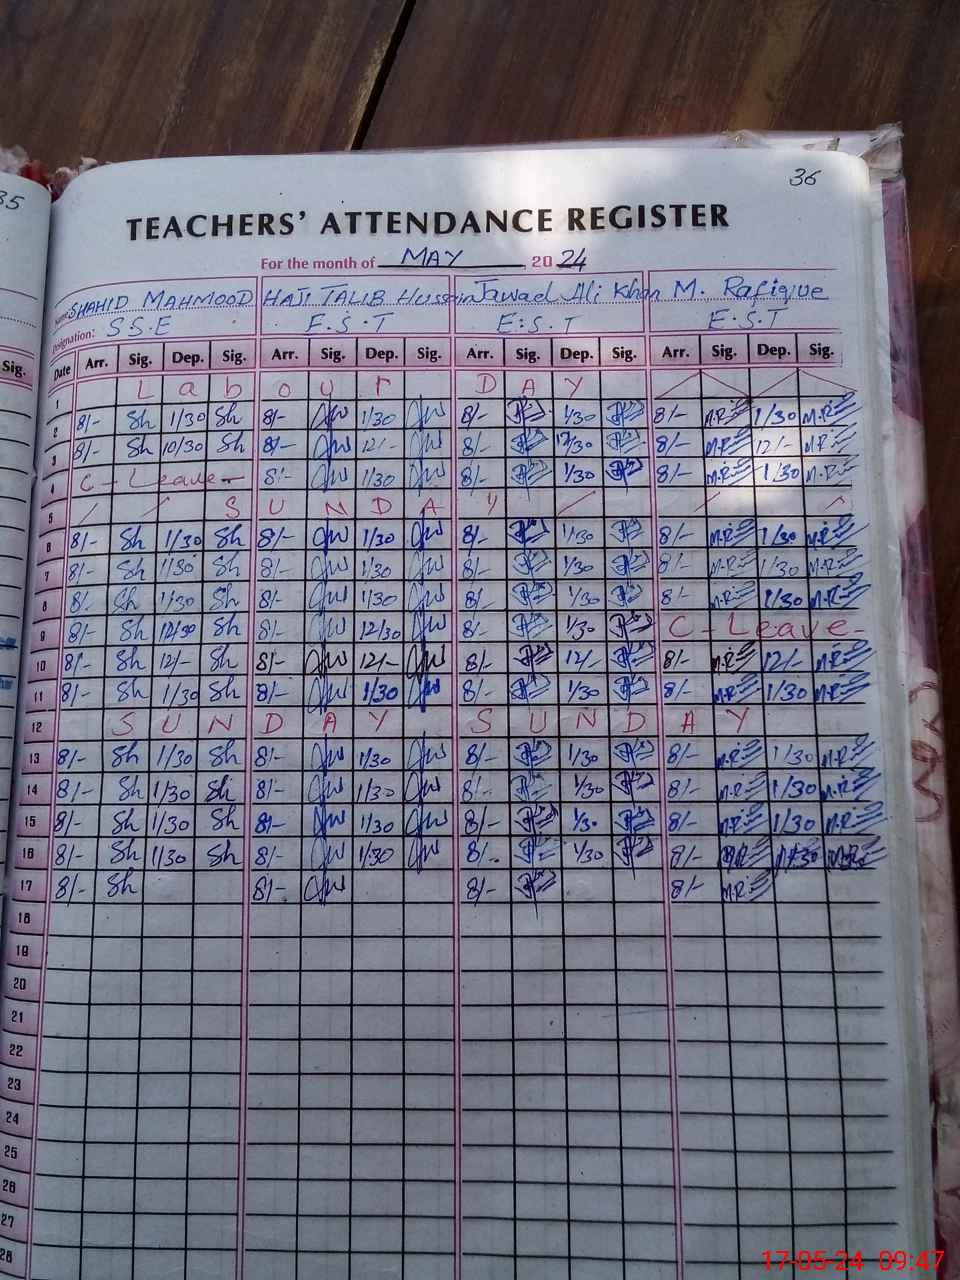 35
36
TEACHERS' ATTENDANCE REGISTER
For the month of MAY, 2024
Name: SHAHID MAHMOOD HAJI TALIB Hussein Jawad Ali Khan M. Rafique
Designation: S.S.E E.S.T E.S.T E.S.T
Sig. Date Arr. Sig. Dep. Sig. Arr. Sig. Dep. Sig. Arr. Sig. Dep. Sig. Arr. Sig. Dep. Sig.
1 Labour DAY
2 8/- Sh 1/30 Sh 8/- 1/30 8/- 1/30 8/- M.R 1/30 M.R
3 8/- Sh 10/30 Sh 8/- 12/- 8/- 12/30 8/- M.R 12/- M.R
4 C - Leave - 8/- 1/30 8/- 1/30 8/- M.R 1/30 M.R
5 SUNDAY
6 8/- Sh 1/30 Sh 8/- 1/30 8/- 1/30 8/- M.R 1/30 M.R
7 8/- Sh 1/30 Sh 8/- 1/30 8/- 1/30 8/- M.R 1/30 M.R
8 8/- Sh 1/30 Sh 8/- 1/30 8/- 1/30 8/- M.R 1/30 M.R
9 8/- Sh 12/30 Sh 8/- 12/30 8/- 1/30 C - Leave -
10 8/- Sh 12/- Sh 8/- 12/- 8/- 12/- 8/- M.R 12/- M.R
11 8/- Sh 1/30 Sh 8/- 1/30 8/- 1/30 8/- M.R 1/30 M.R
12 SUNDAY SUNDAY
13 8/- Sh 1/30 Sh 8/- 1/30 8/- 1/30 8/- M.R 1/30 M.R
14 8/- Sh 1/30 Sh 8/- 1/30 8/- 1/30 8/- M.R 1/30 M.R
15 8/- Sh 1/30 Sh 8/- 1/30 8/- 1/30 8/- M.R 1/30 M.R
16 8/- Sh 1/30 Sh 8/- 1/30 8/- 1/30 8/- M.R 1/30 M.R
17 8/- Sh 8/- 8/- 8/- M.R
18
19
20
21
22
23
24
25
26
27
28
17-05-24 09:47